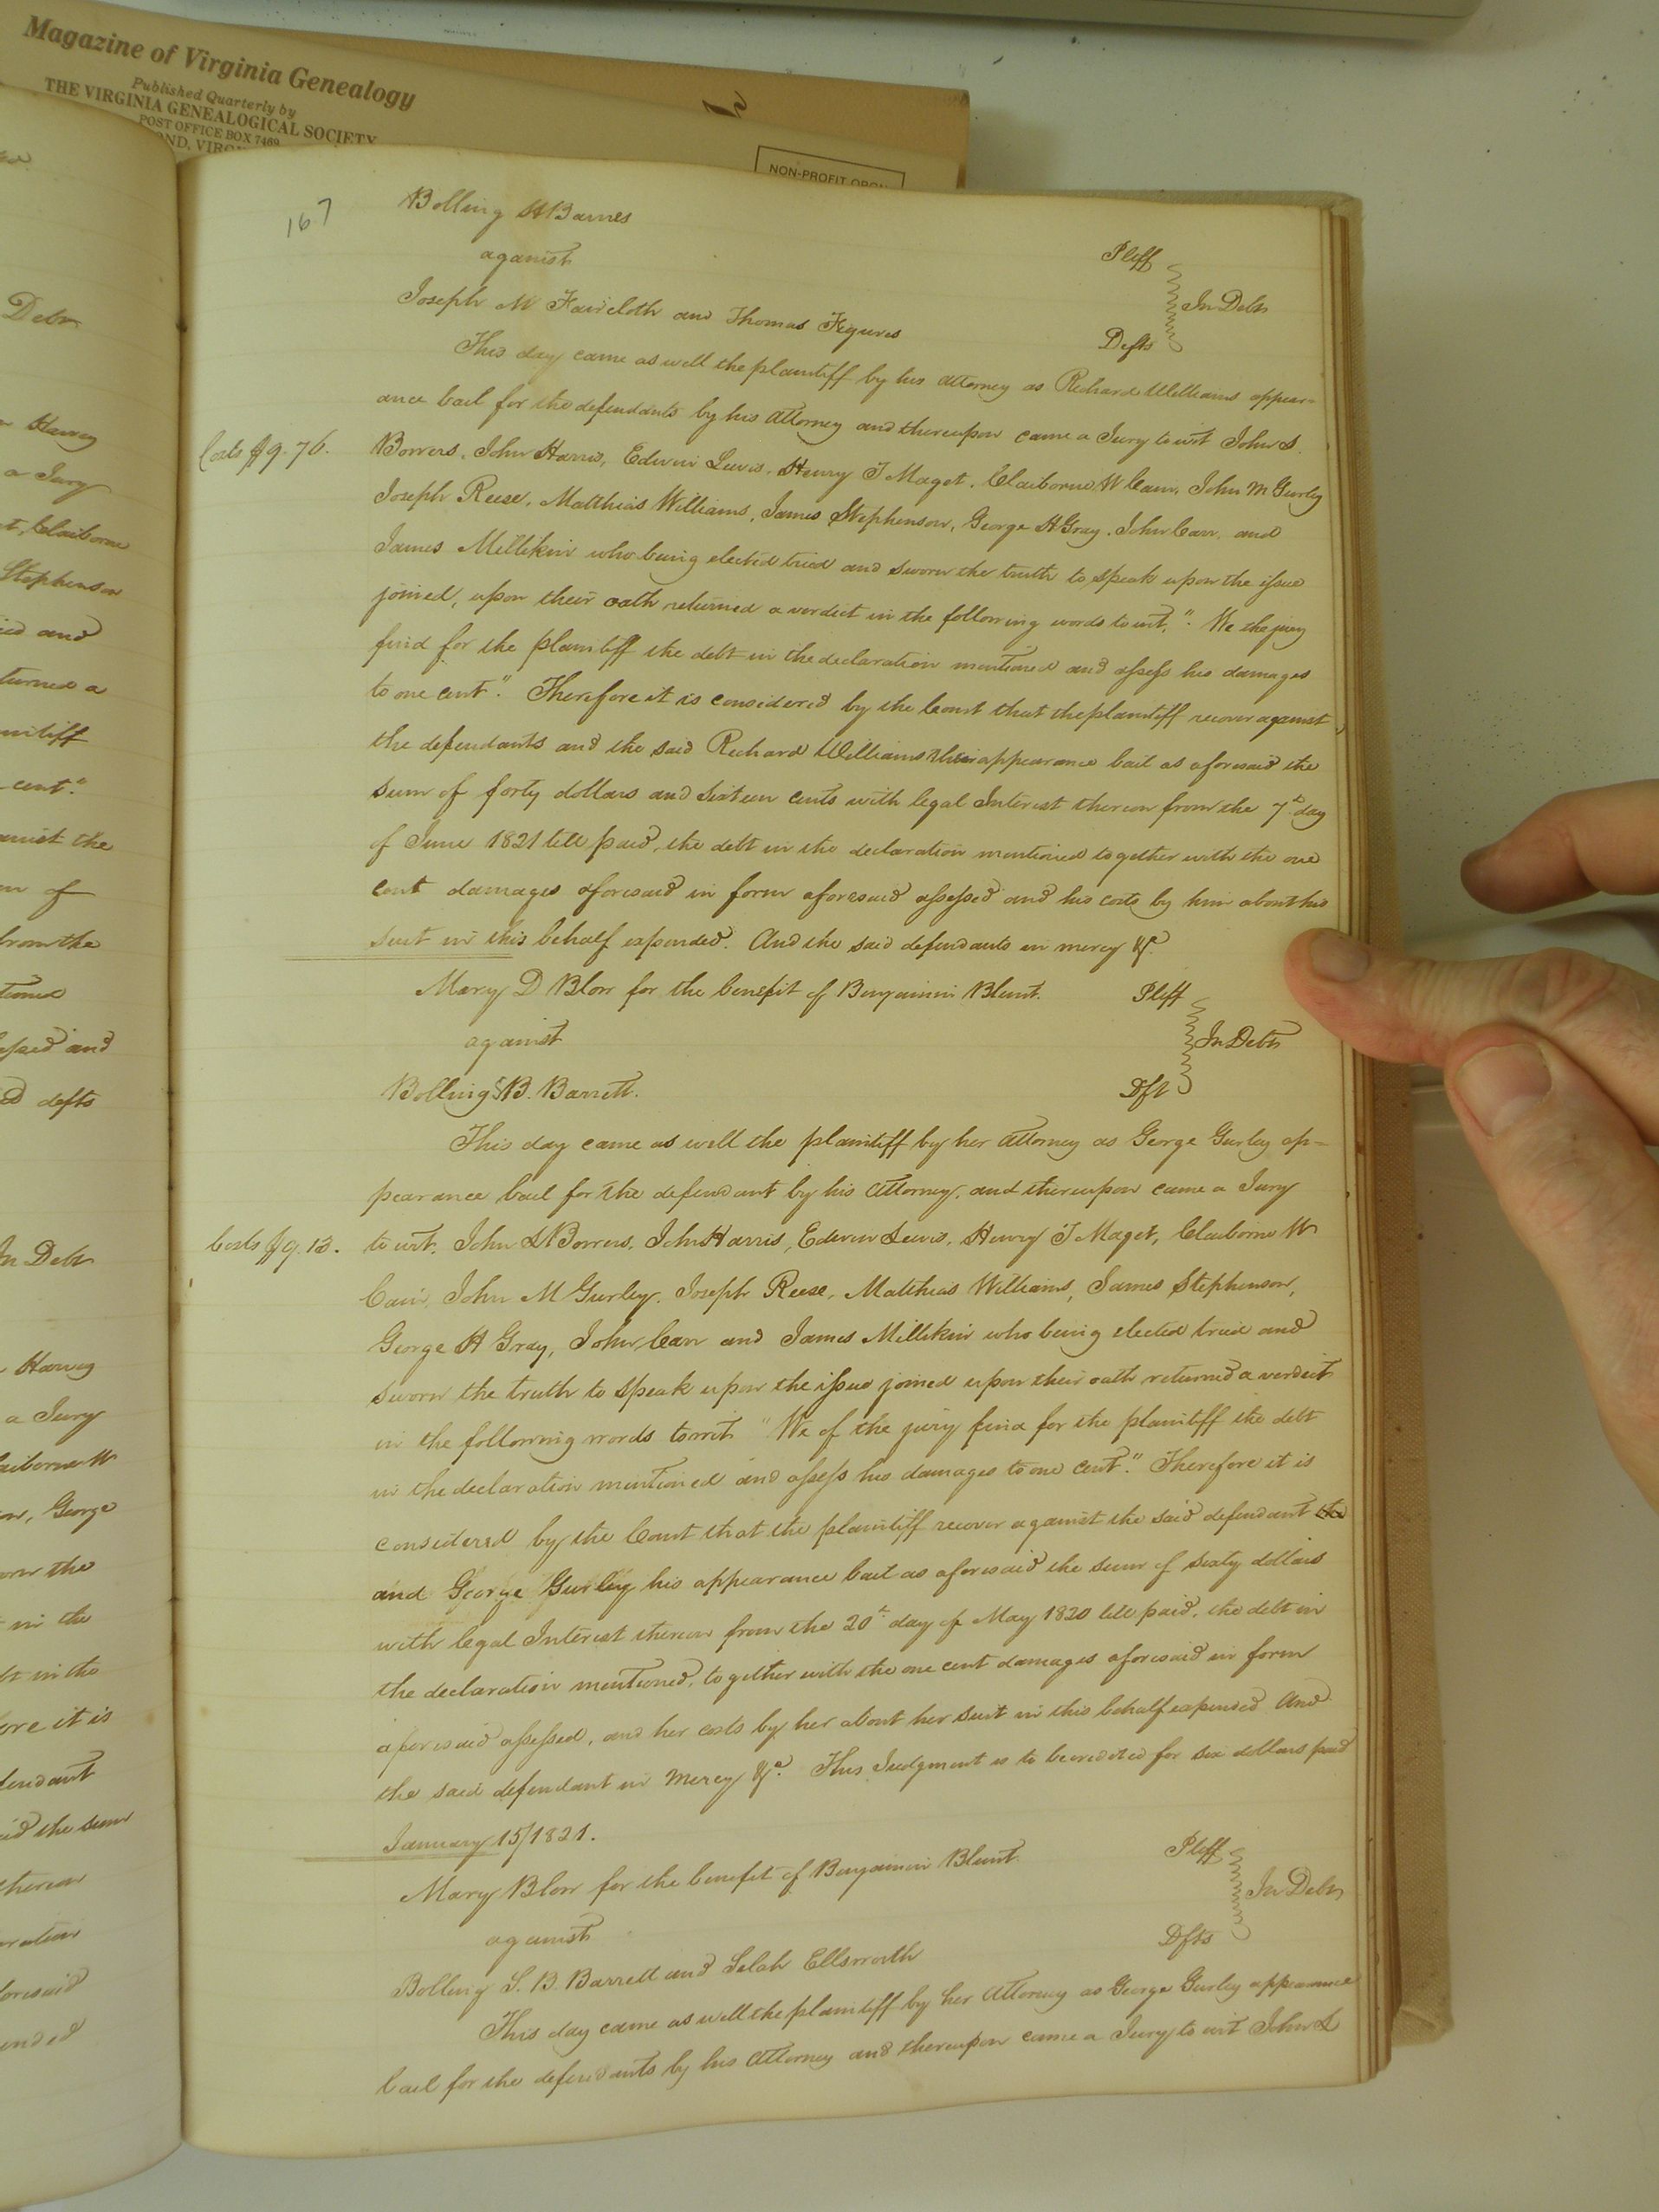 Magazine of Virginia Genealogy
Published Quarterly by
THE VIRGINIA GENEALOGICAL SOCIETY
POST OFFICE BOX 7469
NON-PROFIT ORGN
Debt
Harvey
a Jury
Claiborne
Stephenson
and
turned a
cent."
the
of
from the
and
defts
In Debt
Harvey
a Jury
George
the
in the
in the
it is
the sum
thereon
167
Bolling H Barnes
against
Pltff
Joseph M Faircloth and Thomas Figures
In Debt
Defts
This day came as well the plaintiff by his attorney as Richard Williams appear=
ance bail for the defendants by his attorney and thereupon came a Jury to wit John S.
Costs $9.76.
Bowers, John Harris, Edwin Lewis, Henry J Maget, Claiborne W Cain, John M Gurley
Joseph Reese, Matthias Williams, James Stephenson, George H Gray, John Carr, and
James Millikin who being elected tried and sworn the truth to speak upon the issue
joined, upon their oath returned a verdict in the following words to wit, "We the jury
find for the plaintiff the debt in the declaration mentioned and assess his damages
to one cent". Therefore it is considered by the Court that the plaintiff recover against
the defendants and the said Richard Williams their appearance bail as aforesaid the
sum of forty dollars and sixteen cents with legal Interest thereon from the 7th day
of June 1821 till paid, the debt in the declaration mentioned together with the one
cent damages aforesaid in form aforesaid assessed and his costs by him about his
suit in this behalf expended. And the said defendants in mercy &c.
Mary D Blow for the benefit of Benjamin Blunt.
Pltff
against
In Debt
Bolling S B. Barrett.
Dft
This day came as well the plaintiff by her attorney as Gerge Gurley ap=
pearance bail for the defendant by his attorney, and thereupon came a Jury
Costs $9.13.
to wit, John S Bowers, John Harris, Edwin Lewis, Henry J Maget, Claiborne W
Cain, John M Gurley, Joseph Reese, Matthias Williams, James Stephenson,
George H Gray, John Carr and James Millikin who being elected tried and
sworn the truth to speak upon the issue joined upon their oath returned a verdict
in the following words towit "We of the jury find for the plaintiff the debt
in the declaration mentioned and assess his damages to one cent." Therefore it is
considered by the Court that the plaintiff recover against the said defendant the
and George Gurley his appearance bail as aforesaid the sum of sixty dollars
with legal Interest thereon from the 20th day of May 1820 till paid, the debt in
the declaration mentioned, together with the one cent damages aforesaid in form
aforesaid assessed, and her costs by her about her suit in this behalf expended And
the said defendant in mercy &c. This Judgment is to be credited for six dollars paid
January 15/1821.
Mary Blow for the benefit of Benjamin Blunt.
Pltff
against
In Debt
Bolling S. B. Barrett and Selah Ellsworth
Dfts
This day came as well the plaintiff by her attorney as George Gurley appearance
bail for the defendants by his attorney and thereupon came a Jury to wit John S